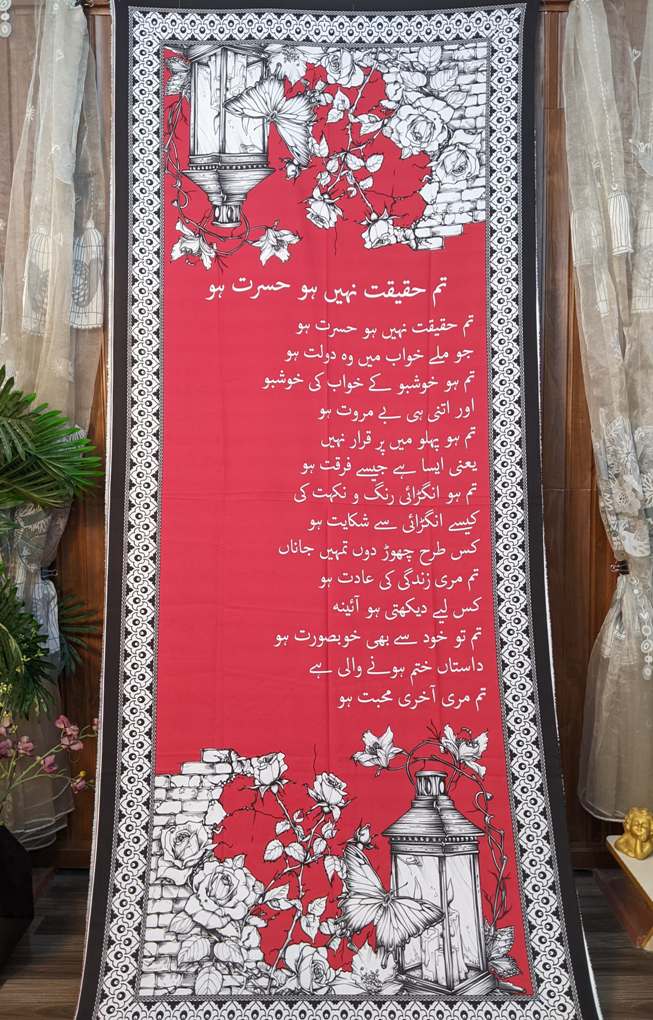 تم حقیقت نہیں ہو حسرت ہو
تم حقیقت نہیں ہو حسرت ہو
جو ملے خواب میں وہ دولت ہو
تم ہو خوشبو کے خواب کی خوشبو
اور اتنی ہی بے مروت ہو
تم ہو پہلو میں پر قرار نہیں
یعنی ایسا ہے جیسے فرقت ہو
تم ہو انگڑائی رنگ و نکہت کی
کیسے انگڑائی سے شکایت ہو
کس طرح چھوڑ دوں تمہیں جاناں
تم مری زندگی کی عادت ہو
کس لیے دیکھتی ہو آئینہ
تم تو خود سے بھی خوبصورت ہو
داستاں ختم ہونے والی ہے
تم مری آخری محبت ہو